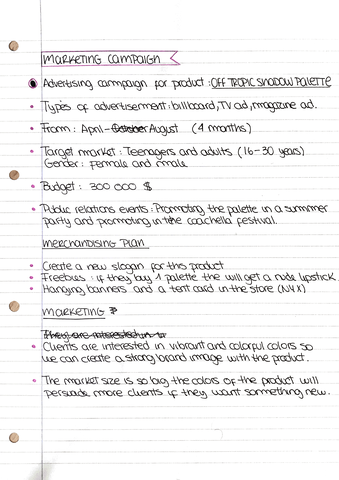 MARKETING CAMPAIGN
Advertising campaign for product: OFF TROPIC SHADOW PALETTE
Types of advertisement: billboard, TV ad, magazine ad.
From: April - October August (4 months)
Target market: Teenagers and adults (16-30 years)
Gender: Female and male
Budget: 300 000 $
Public relations events: Promoting the palette in a summer
party and promoting in the coachella festival.
MERCHANDISING PLAN
Create a new slogan for this product
Freebies: if they buy 1 palette the will get a nude lipstick.
Hanging banners and a tent card in the store (NYX)
MARKETING P
They are interested in
Clients are interested in vibrant and colorful colors so
we can create a strong brand image with the product.
The market size is so big the colors of the product will
persuade more clients if they want something new.